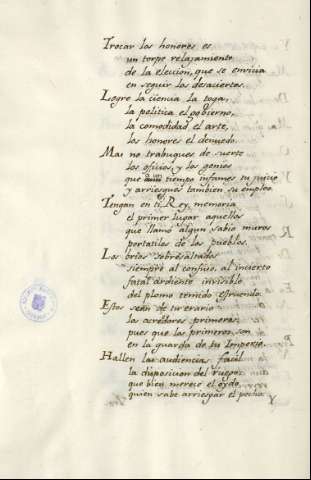 Trocar los honores es
un torpe relajamiento
de la eleccion, que se envicia
en seguir los desaciertos.
Logre la ciencia la toga,
la politica el govierno,
la comodidad el arte,
los honores el denuedo.
Mas no trabuques de suerte
los oficios, y los genios
que tiempo infames tu juicio
y arriesgues tambien su empleo.
Tengan en ti, Rey, memoria
el primer lugar aquellos
que llamó algun sabio muros
portatiles de los pueblos.
Los brios sobresaltados
siempre al confuso, al incierto
fatal ardiente invisible
del plomo temido estruendo.
Estos sean de tu erario
los acredores primeros,
pues que los primeros son
en la guarda de tu Imperio.
Hallen las audiencias facil
la disposicion del ruego:
que bien merece el oydo,
quien sabe arriesgar el pecho.